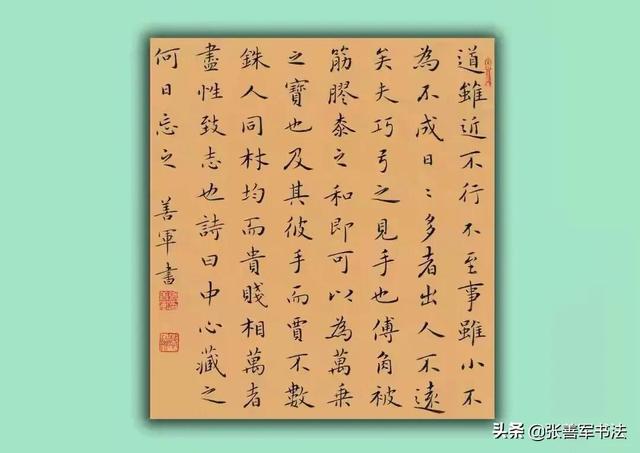 道雖近不行不至事雖小不
為不成日〻多者出人不遠
矣夫巧弓之見手也傅角被
筋膠桼之和即可以為萬乗
之寶也及其彼手而賈不數
銖人同材均而貴賤相萬者
盡性致志也詩曰中心藏之
何日忘之 善軍書
头条 @张善军书法